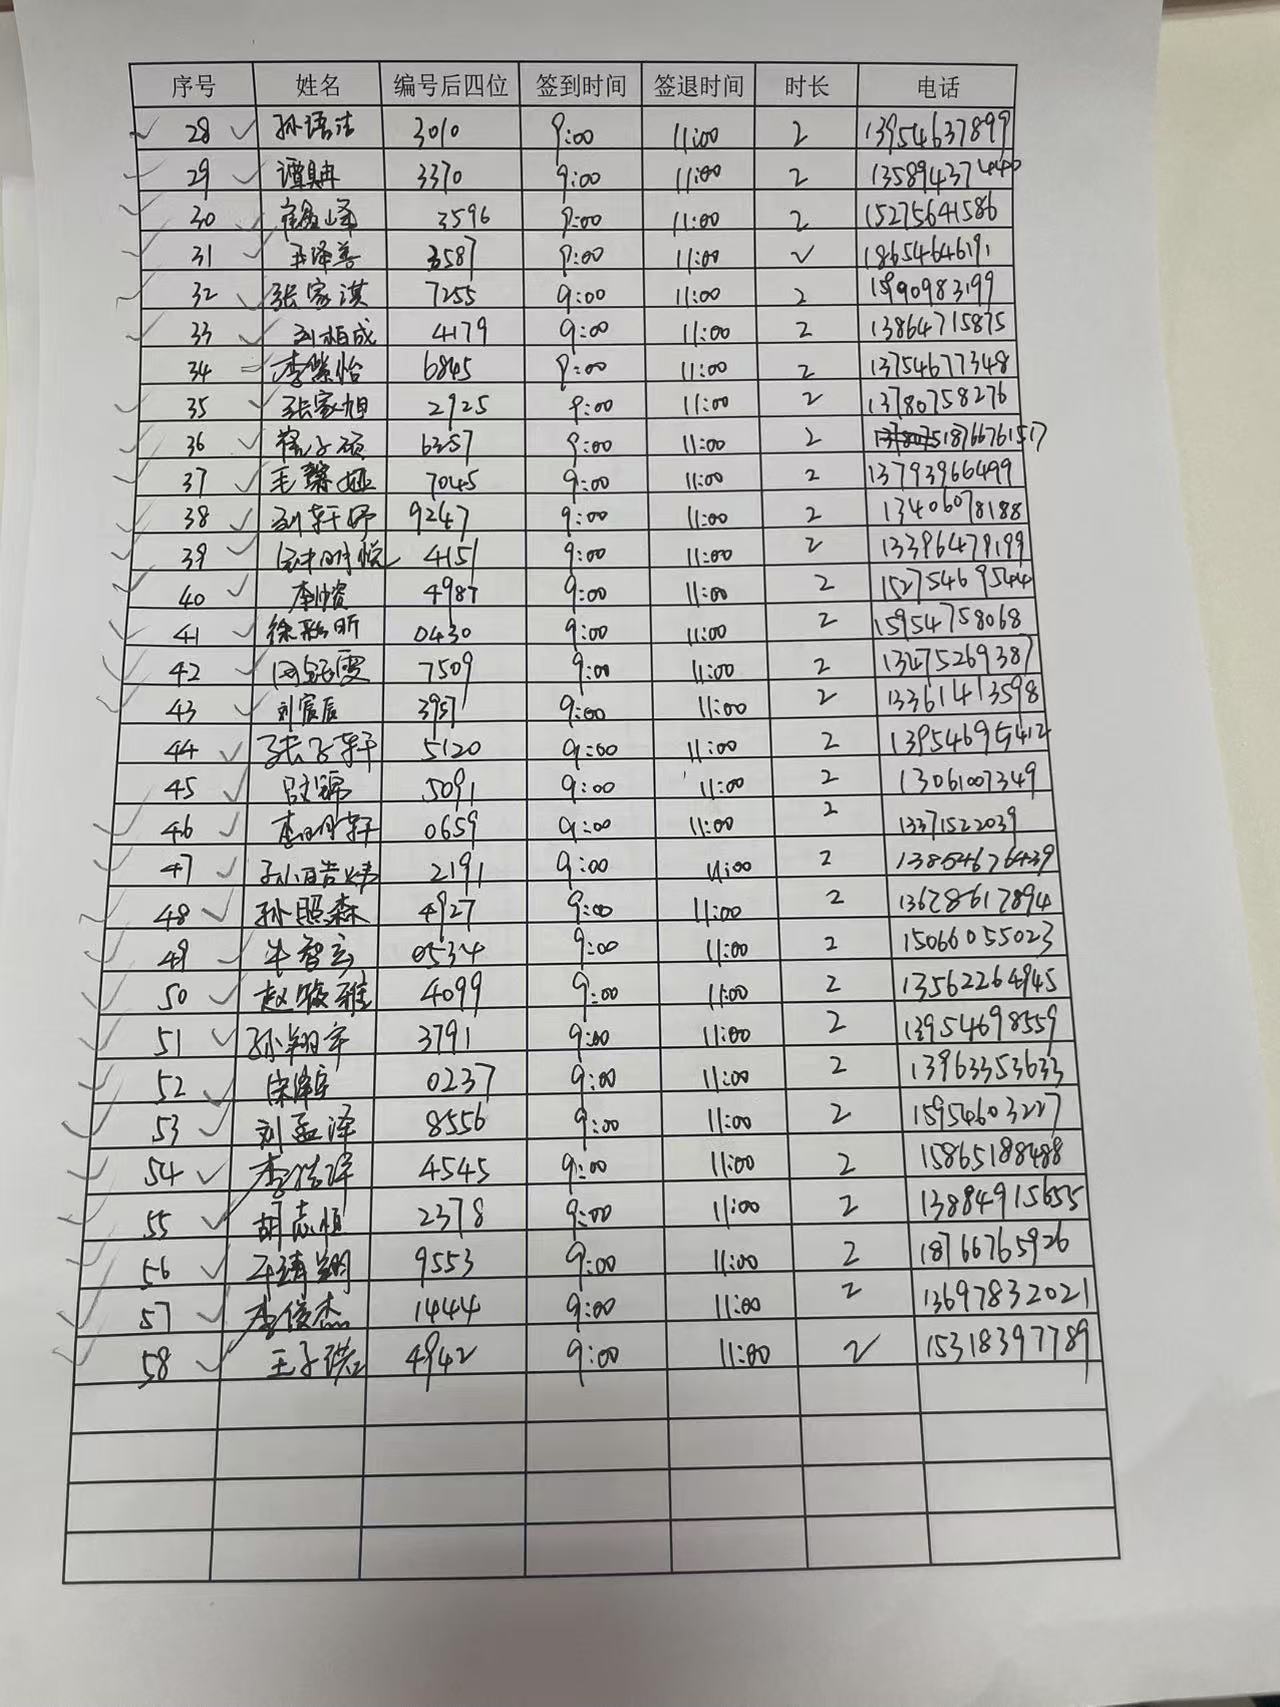 序号 姓名 编号后四位 签到时间 签退时间 时长 电话
28 孙语洁 3010 9:00 11:00 2 13954637899
29 3370 9:00 11:00 2 13589437440
30 3596 9:00 11:00 2 15275641586
31 王泽善 3587 9:00 11:00 2 18654646191
32 张家淇 7255 9:00 11:00 2 15990983199
33 刘柏成 4179 9:00 11:00 2 13864715875
34 李紫怡 6845 9:00 11:00 2 13754677348
35 张家旭 2925 9:00 11:00 2 13780758276
36 6357 9:00 11:00 2 18766761517
37 毛馨娅 7045 9:00 11:00 2 13793966499
38 刘轩妤 9247 9:00 11:00 2 13406078188
39 4151 9:00 11:00 2 13396479199
40 4987 9:00 11:00 2 15275469544
41 徐彩昕 0430 9:00 11:00 2 15954758068
42 7509 9:00 11:00 2 13475269387
43 刘宸辰 3957 9:00 11:00 2 13361413598
44 张飞轩 5120 9:00 11:00 2 13954695412
45 5091 9:00 11:00 2 13061007349
46 李明轩 0659 9:00 11:00 2 13371522039
47 2191 9:00 11:00 2 13854676439
48 孙照森 4927 9:00 11:00 2 13628617894
49 牛智玄 0534 9:00 11:00 2 15066055023
50 赵骏雅 4099 9:00 11:00 2 13562264945
51 孙翔宇 3791 9:00 11:00 2 13954698559
52 宋泽宇 0237 9:00 11:00 2 13963353633
53 刘孟泽 8556 9:00 11:00 2 15954603227
54 4545 9:00 11:00 2 15865188488
55 胡志恒 2378 9:00 11:00 2 13884915655
56 9553 9:00 11:00 2 18766765926
57 李俊杰 1444 9:00 11:00 2 13697832021
58 4942 9:00 11:00 2 15318397789